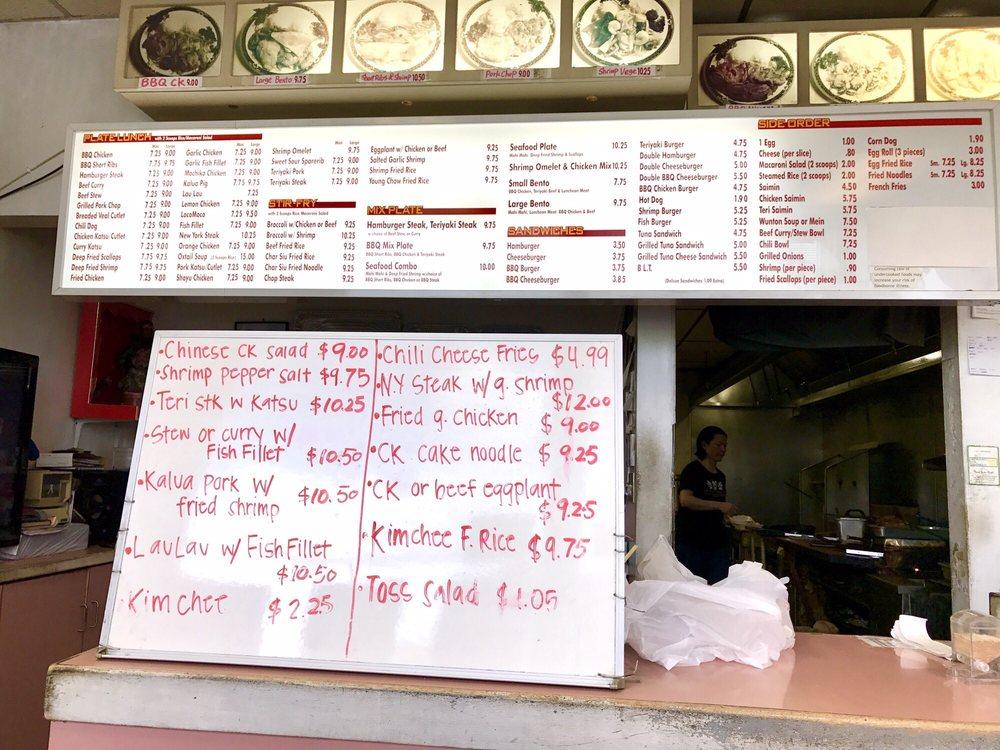 BBQ CK 9.00
Large Bento 9.75
Short Ribs & Shrimp 10.50
Pork Chop 9.00
Shrimp Vege 10.25
PLATE LUNCH with 2 Scoops Rice/Macaroni Salad
Mini Lrg
BBQ Chicken 7.25 9.00
BBQ Short Ribs 7.75 9.75
Hamburger Steak 7.25 9.00
Beef Curry 7.25 9.00
Beef Stew 7.25 9.00
Grilled Pork Chop 7.25 9.00
Breaded Veal Cutlet 7.25 9.00
Chili Dog 7.25 9.00
Chicken Katsu Cutlet 7.25 9.00
Curry Katsu 7.25 9.00
Deep Fried Scallops 7.75 9.75
Deep Fried Shrimp 7.75 9.75
Fried Chicken 7.25 9.00
Garlic Chicken 7.25 9.00
Garlic Fish Fillet 7.25 9.00
Mochiko Chicken 7.25 9.00
Kalua Pig 7.75 9.75
Lau Lau 7.25
Lemon Chicken 7.25 9.00
LocoMoco 7.25 9.50
Fish Fillet 7.25 9.00
New York Steak 10.25
Orange Chicken 7.25 9.00
Oxtail Soup (2 Scoops Rice) 15.00
Pork Katsu Cutlet 7.25 9.00
Shoyu Chicken 7.25 9.00
Shrimp Omelet 9.75
Sweet Sour Sparerib 7.25 9.00
Teriyaki Pork 7.25 9.00
Teriyaki Steak 7.25 9.00
STIR-FRY
with 2 Scoops Rice, Macaroni Salad
Broccoli w/Chicken or Beef 9.25
Broccoli w/ Shrimp 10.25
Beef Fried Rice 9.25
Char Siu Fried Rice 9.25
Char Siu Fried Noodle 9.25
Chop Steak 9.25
Eggplant w/ Chicken or Beef 9.25
Salted Garlic Shrimp 9.75
Shrimp Fried Rice 9.75
Young Chow Fried Rice 9.75
MIX PLATE
Hamburger Steak, Teriyaki Steak 9.75
w/choice of Beef Stew, or Curry
BBQ Mix Plate 9.75
BBQ Short Ribs, BBQ Chicken & Teriyaki Steak
Seafood Combo 10.00
Mahi Mahi & Deep Fried Shrimp w/choice of
BBQ Short Ribs, BBQ Chicken or BBQ Steak
Seafood Plate 10.25
Mahi Mahi, Deep Fried Shrimp & Scallops
Shrimp Omelet & Chicken Mix 10.25
Small Bento 7.75
BBQ Chicken, Teriyaki Beef & Luncheon Meat
Large Bento 9.75
Mahi Mahi, Luncheon Meat, BBQ Chicken & Beef
SANDWICHES
Hamburger 3.50
Cheeseburger 3.75
BBQ Burger 3.75
BBQ Cheeseburger 3.85
Teriyaki Burger 4.75
Double Hamburger 4.75
Double Cheeseburger 5.00
Double BBQ Cheeseburger 5.75
BBQ Chicken Burger 4.75
Hot Dog 1.90
Shrimp Burger 5.25
Fish Burger 5.25
Tuna Sandwich 5.00
Grilled Tuna Cheese Sandwich 5.50
B.L.T. 5.50
(Deluxe Sandwiches 1.00 Extra)
SIDE ORDER
1 Egg 1.00
Cheese (per slice) .80
Macaroni Salad (2 scoops) 2.00
Steamed Rice (2 scoops) 2.00
Saimin 4.50
Chicken Saimin 5.75
Teri Saimin 5.75
Wunton Soup or Mein 7.50
Beef Curry/Stew Bowl 7.25
Chili Bowl 7.25
Grilled Onions 1.00
Shrimp (per piece) .90
Fried Scallops (per piece) 1.00
Corn Dog 1.90
Egg Roll (3 pieces) 3.00
Egg Fried Rice Sm. 7.25 Lg. 8.25
Fried Noodles Sm. 7.25 Lg. 8.25
French Fries 3.00
Consuming raw or
undercooked foods may
increase your risk of
foodborne illness.
•Chinese CK salad $9.00
•Shrimp pepper salt $9.75
•Teri stk w Katsu $10.25
•Stew or curry w/
Fish Fillet $10.50
•Kalua pork w/
fried shrimp $10.50
•LauLau w/ Fish Fillet
$10.50
•Kim chee $2.25
•Chili Cheese Fries $4.99
•NY Steak w/g. shrimp
$12.00
•Fried g. chicken $9.00
•CK cake noodle $9.25
•CK or beef eggplant
$9.25
•Kimchee F. Rice $9.75
•Toss Salad $1.05